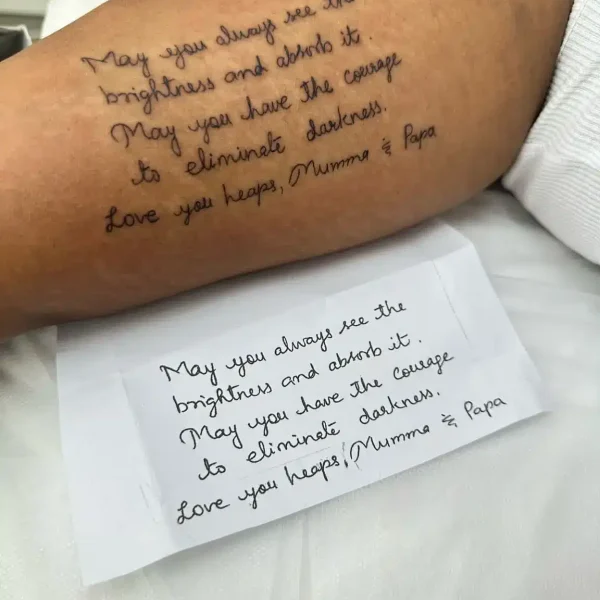 May you always see the
brightness and absorb it.
May you have the courage
to eliminate darkness.
Love you heaps, Mumma & Papa
May you always see the
brightness and absorb it.
May you have the courage
to eliminate darkness.
Love you heaps, Mumma & Papa